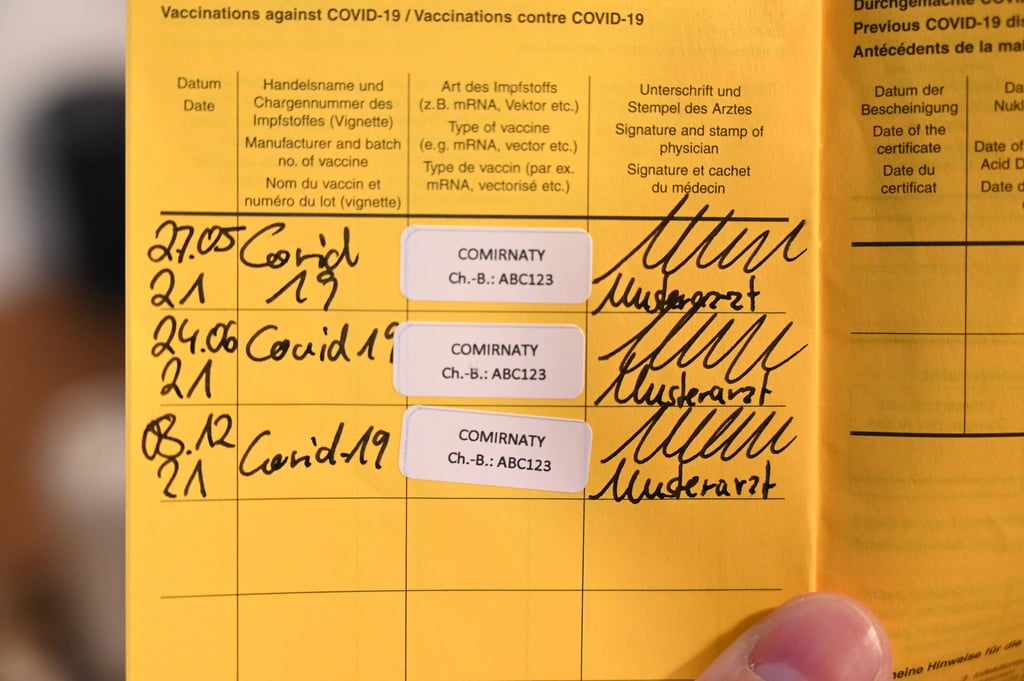 Vaccinations against COVID-19 / Vaccinations contre COVID-19
Datum
Date
Handelsname und
Chargennummer des
Impfstoffes (Vignette)
Manufacturer and batch
no. of vaccine
Nom du vaccin et
numéro du lot (vignette)
Art des Impfstoffs
(z.B. mRNA, Vektor etc.)
Type of vaccine
(e.g. mRNA, vector etc.)
Type de vaccin (par ex.
mRNA, vectorisé etc.)
Unterschrift und
Stempel des Arztes
Signature and stamp of
physician
Signature et cachet
du médecin
27.05
21
Covid
19
COMIRNATY
Ch.-B.: ABC123
Musterarzt
24.06
21
Covid 19
COMIRNATY
Ch.-B.: ABC123
Musterarzt
03.12
21
Covid-19
COMIRNATY
Ch.-B.: ABC123
Musterarzt
Durchgemachte
Previous COVID-19
Antécédents de la
Datum der
Bescheinigung
Date of the
certificate
Date du
certificat
Date of
Acid
Date
Hinweise für die